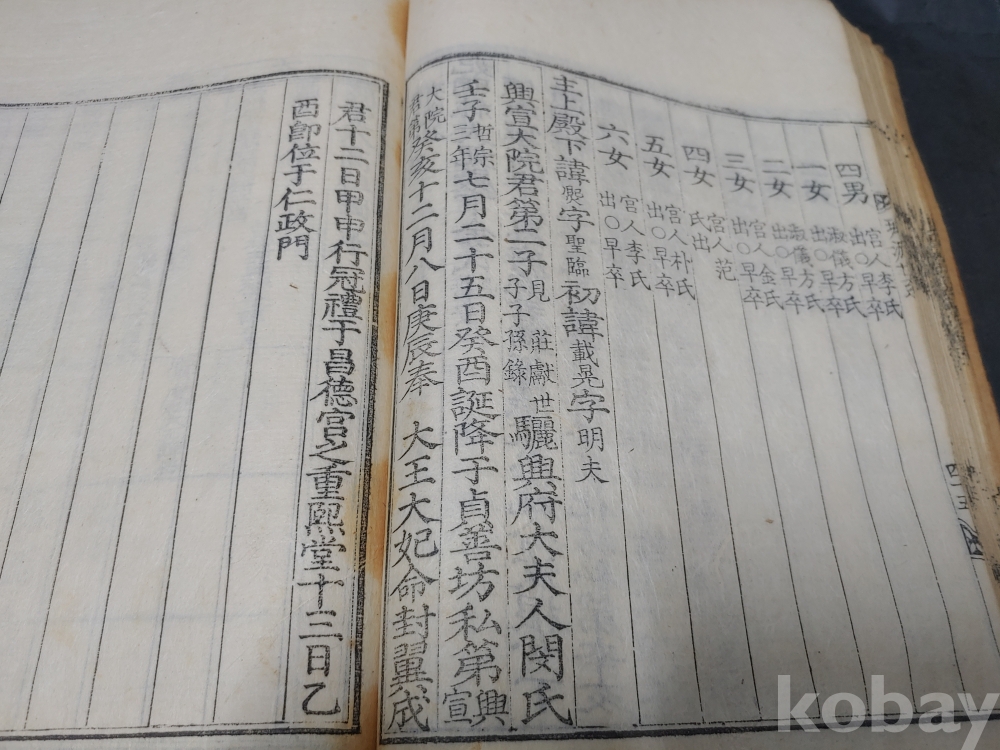 四男 宮人李氏出○早卒
一女 淑儀方氏出○早卒
二女 淑儀方氏出○早卒
三女 宮人金氏出○早卒
四女 宮人范氏出
五女 宮人朴氏出○早卒
六女 宮人李氏出○早卒
主上殿下諱㷩字聖臨初諱載晃字明夫
興宣大院君第二子見莊獻世子子孫錄驪興府大夫人閔氏
壬子哲宗三年七月二十五日癸酉誕降于貞善坊私第興宣
大院君第癸亥十二月八日庚辰奉 大王大妃命封翼成
君十二日甲申行冠禮于昌德宮之重熙堂十三日乙
酉卽位于仁政門
kobay